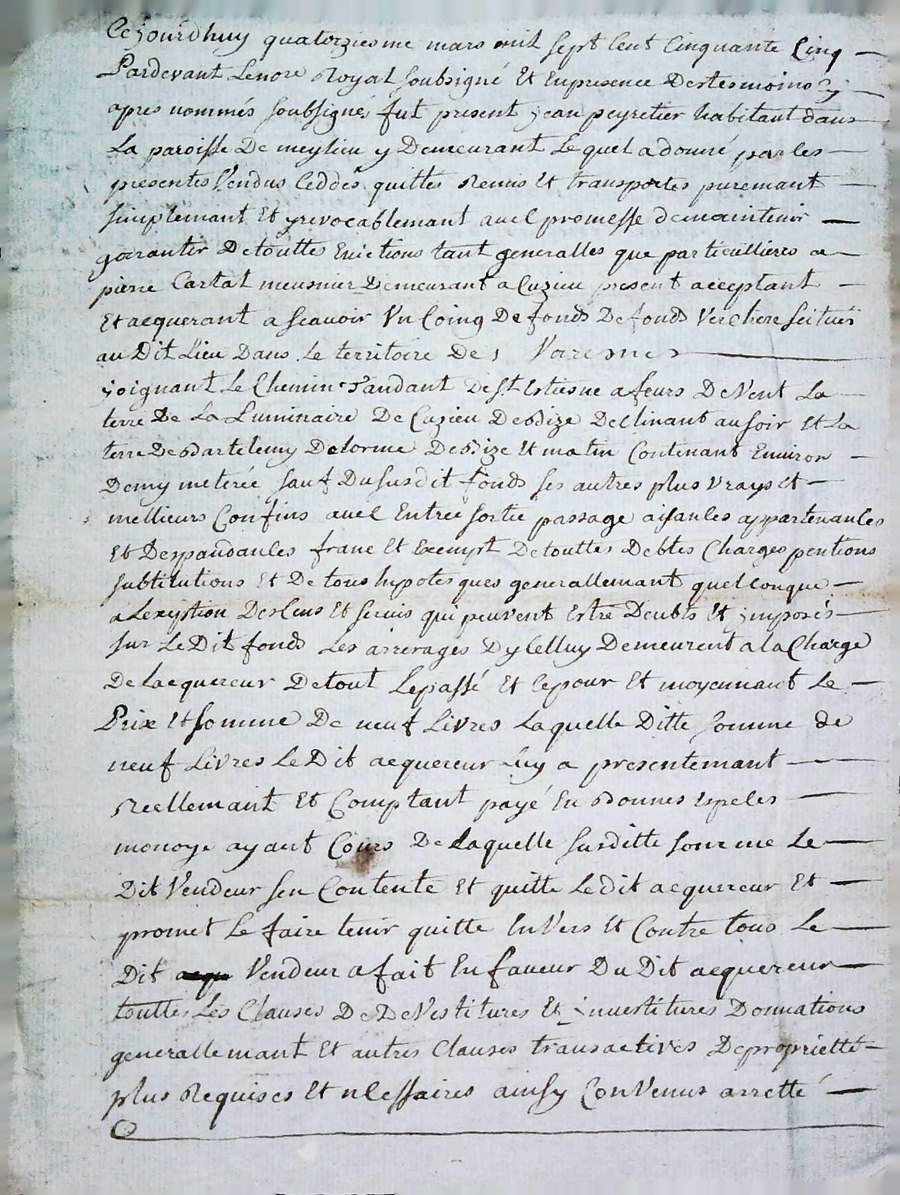 Cejourdhuy quatorziesme mars mil sept Cent Cinquante Cinq
Pardevant Lenore Royal soubsigné Et Enpresence Destesmoins cy
apres nommés soubsignés fut present jean peyretier habitant dans
La paroisse De meylieu y Demeurant Lequel adonné par les
presentes Vendus Ceddés quittes Remis Et transportes puremant
simplemant Et yrevocablemant avec promesse demaintenir
garantir Detouttes Evictions tant generalles que particullieres a
pierre Cartal meusnier Demeurant a Cuzieu present acceptant
Et acquerant a scavoir Un Coing De fonds De fonds Verchere scitués
au Dit Lieu Dans Le territoire Des Varesnes
joignant Le Chemin Tandant De St Estiesne a feurs De Vent La
terre De La Luminaire De Cuzieu De Bize Declinant au soir Et La
terre De Bartelemy Delorme De Bize Et matin Contenant Environ
Demy meterée sauf Du susdit fonds ses autres plus Vrays Et
mellieurs Confins avec Entrée sortie passage aisances appartenances
Et Despandances franc Et Exempt De touttes Debtes Charges pentions
subtitutions Et De tous hipotesques generallemant quelconque
a Lexeption Des Cens Et servis qui peuvent Estre Deubts Et jmposés
sur Le Dit fonds Les arrerages Dycelluy Demeurent a la Charge
De Lacquereur De tout Lepassé Et Cepour Et moyennant Le
Prix Et somme De neuf Livres Laquelle Ditte somme de
neuf Livres Le Dit acquereur Luy a presentemant
Reellemant Et Comptant payé En Bonnes Especes
monoye ayant Cours De Laquelle susditte somme Le
Dit Vendeur sen Contente Et quitte Le dit acquereur Et
promet Le faire tenir quitte En Vers Et Contre tous Le
Dit Vendeur a fait En faveur Du Dit acquereur
touttes Les Clauses De DeVestitures Et jnvestitures Donnations
generallemant Et autres Clauses transactives De proprietté
plus Requises Et necessaires ainsy ConVenus arretté